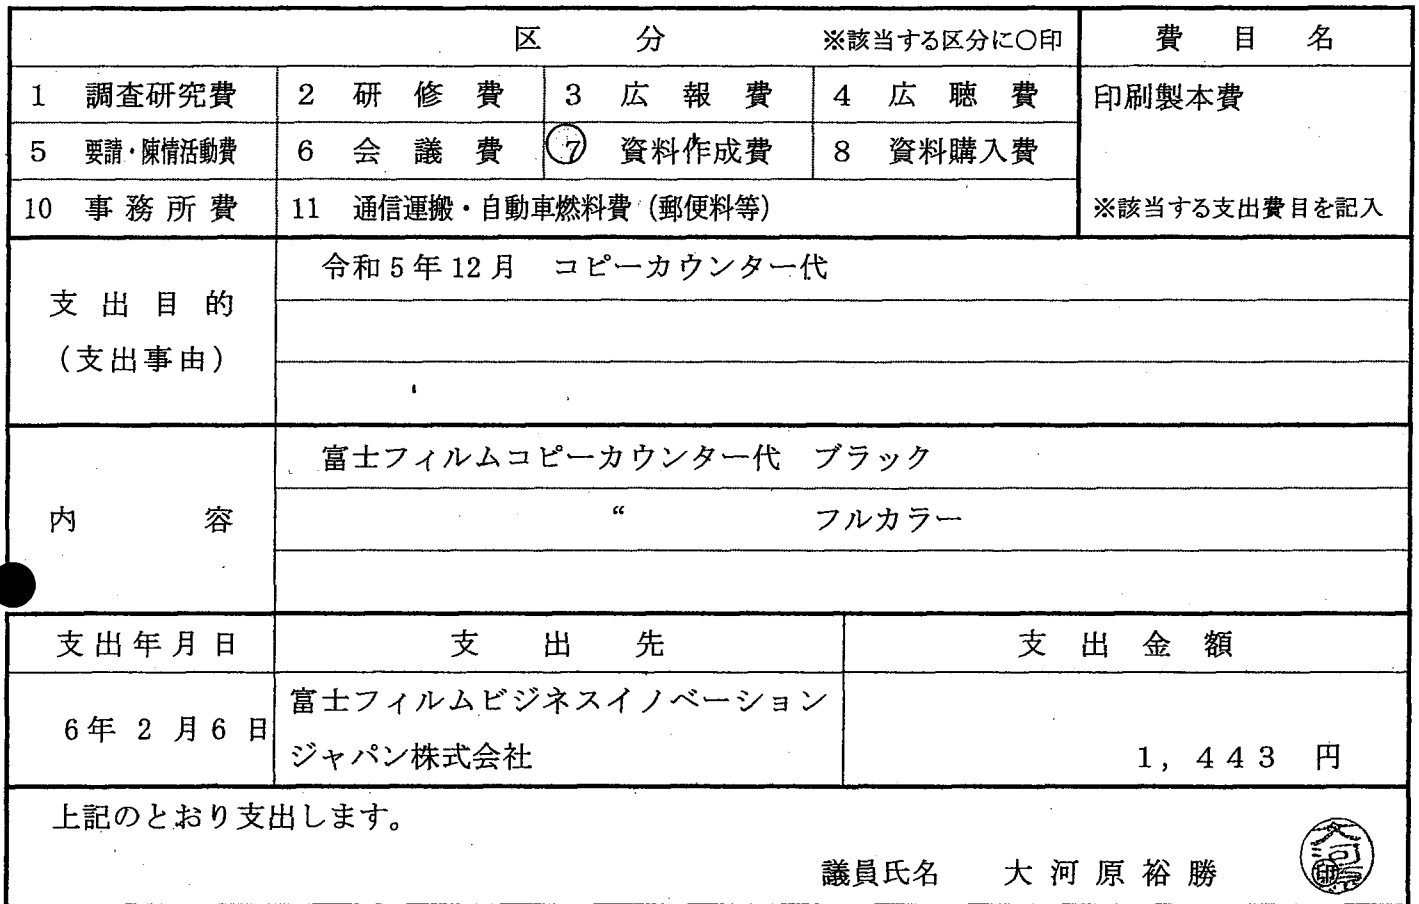 区 分 ※該当する区分に○印 費 目 名
1 調査研究費 2 研 修 費 3 広 報 費 4 広 聴 費 印刷製本費
5 要請・陳情活動費 6 会 議 費 7 資料作成費 8 資料購入費
10 事 務 所 費 11 通信運搬・自動車燃料費(郵便料等) ※該当する支出費目を記入
令和5年12月 コピーカウンター代
支 出 目 的
(支出事由)
富士フィルムコピーカウンター代 ブラック
内 容 “ フルカラー
支出年月日 支 出 先 支 出 金 額
富士フィルムビジネスイノベーション
6年 2 月 6 日
ジャパン株式会社 1,443 円
上記のとおり支出します。
議員氏名 大 河 原 裕 勝
印